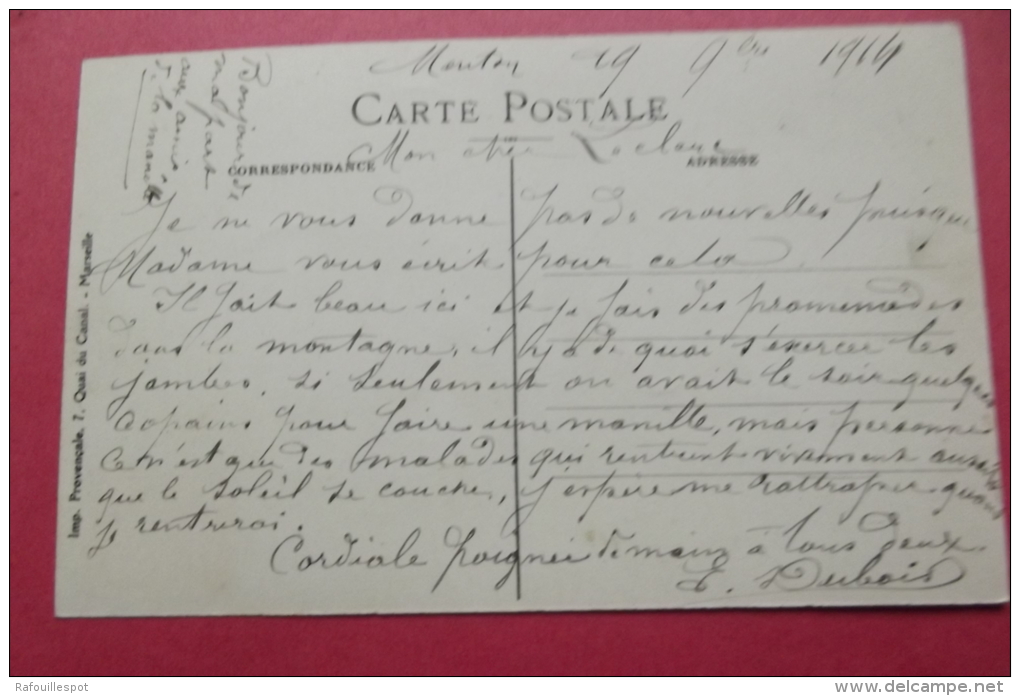 Menton 19 9bre 1914
CARTE POSTALE
Mon cher
CORRESPONDANCE
ADRESSE
Je ne vous donne pas de nouvelles puisque
Madame vous écrit pour cela
Il fait beau ici et je fais des promenades
dans la montagne, il y a de quoi s'exercer les
jambes, si seulement on avait le soir quelques
copains pour faire une manille, mais personne
ce n'est que des malades qui rentrent vivement aussitôt
que le soleil se couche, j'espère me rattraper quand
je rentrerai.
Cordiale poignée de mains à tous deux
E. Dubois
Bonjour de
ma part
aux amis
de la manille
Imp. Provençale. 7. Quai du Canal. - Marseille
Rafouillespot
www.delcampe.net